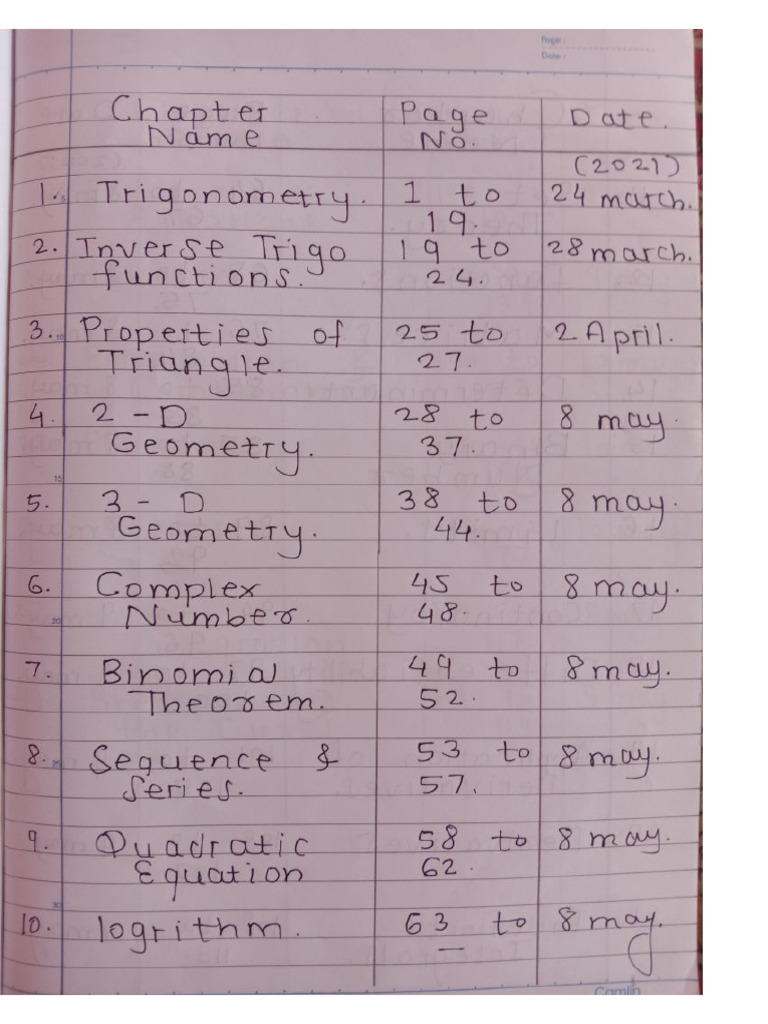 Page:
Date:
Chapter Name Page No. Date.
(2021)
1. Trigonometry. 1 to 19. 24 march.
2. Inverse Trigo functions. 19 to 24. 28 march.
3. Properties of Triangle. 25 to 27. 2 April.
4. 2-D Geometry. 28 to 37. 8 may.
5. 3-D Geometry. 38 to 44. 8 may.
6. Complex Number. 45 to 48. 8 may.
7. Binomial Theorem. 49 to 52. 8 may.
8. Sequence & Series. 53 to 57. 8 may.
9. Quadratic Equation 58 to 62. 8 may.
10. logrithm. 63 to — 8 may.
Camlin